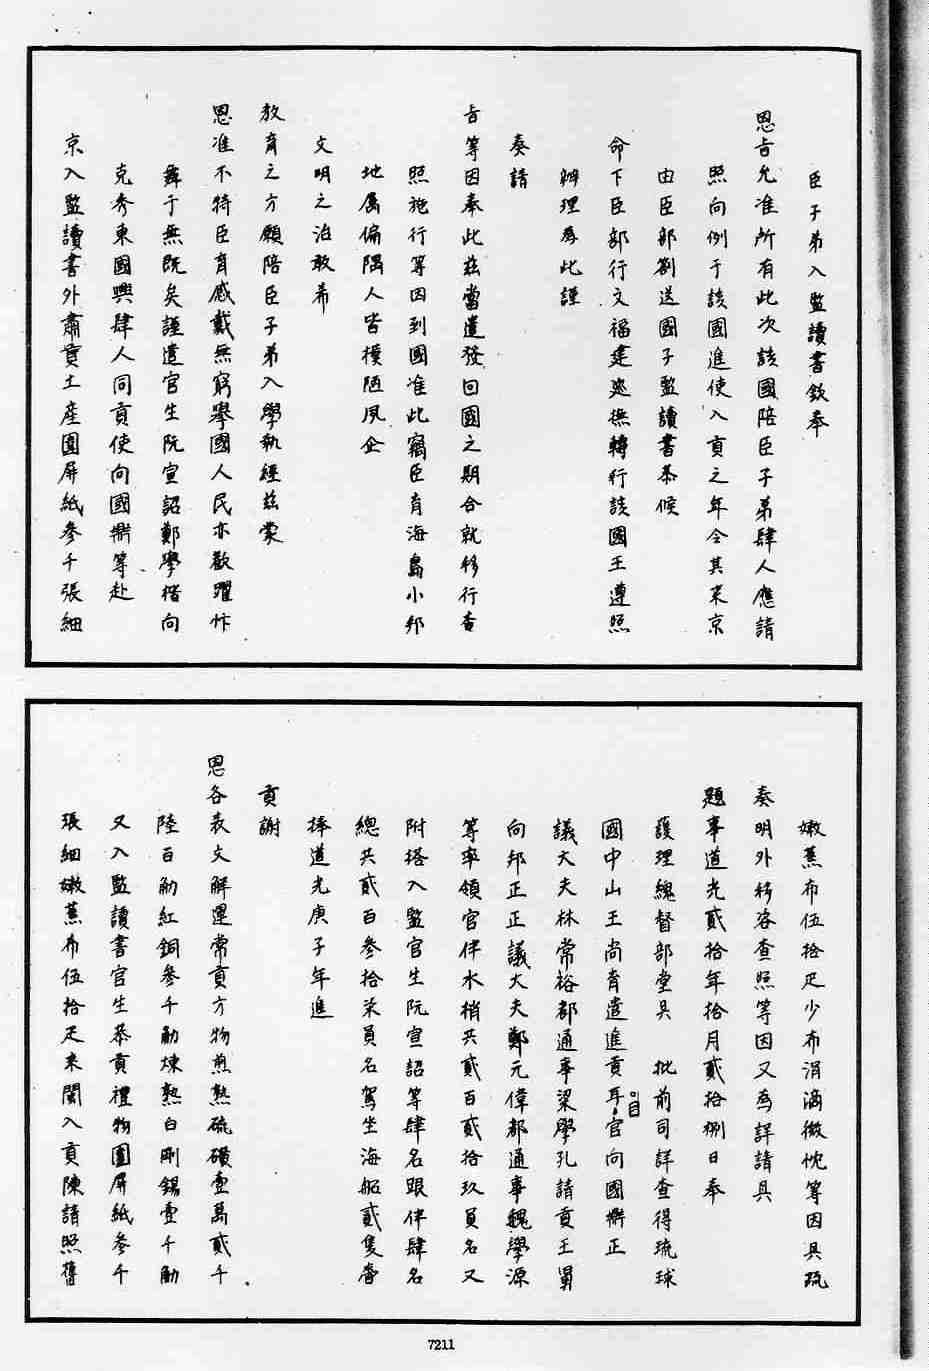 臣子弟入監讀書欽奉
恩旨允准所有此次該國陪臣子弟肆人應請
照向例于該國進使入貢之年令其来京
由臣部劄送國子監讀書恭候
命下臣部行文福建巡撫轉行該國王遵照
辦理為此謹
奏請
旨等因奉此茲當遣發回國之期合就移行查
照施行等因到國准此竊臣育海島小邦
地屬偏隅人皆樸陋夙企
文明之治敢希
教育之方願陪臣子弟入學執經茲蒙
恩准不特臣育感戴無窮舉國人民亦歡躍忭
舞于無既矣謹遣官生阮宣詔鄭學楷向
克秀東國興肆人同貢使向國鼎等赴
京入監讀書外肅貢土産圍屏紙參千張細
嫩蕉布伍拾疋少布涓滴微忱等因具疏
奏明外移咨查照等因又為詳請具
題事道光貳拾年拾月貳拾捌日奉
護理總督部堂吳 批前司詳查得琉球
國中山王尚育遣進貢耳目官向國鼎正
議大夫林常裕都通事梁學孔請貢王舅
向邦正正議大夫鄭元偉都通事魏學源
等率領官伴水梢共貳百貳拾玖員名又
附搭入監官生阮宣詔等肆名跟伴肆名
總共貳百參拾柒員名駕坐海船貳隻賫
捧道光庚子年進
貢謝
恩各表文解運常貢方物煎熟硫磺壹萬貳千
陸百觔紅銅參千觔煉熟白剛錫壹千觔
又入監讀書官生恭貢禮物圍屏紙參千
張細嫩蕉布伍拾疋来閩入貢陳請照舊
7211